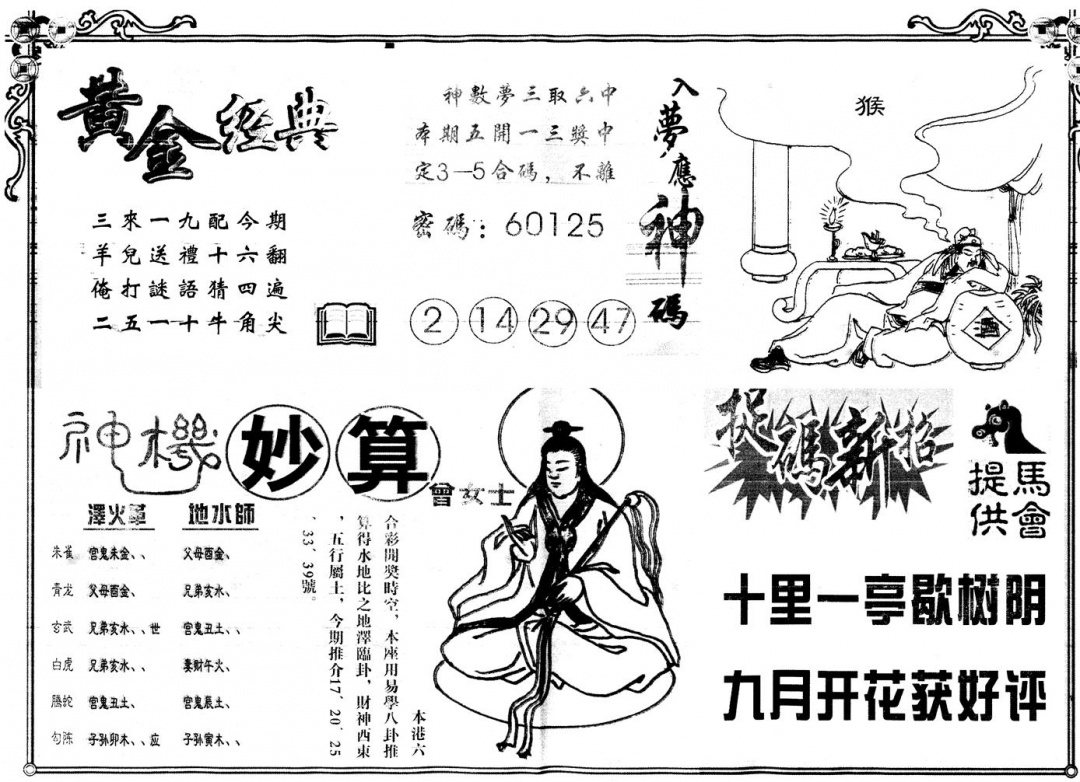 黄金经典
三來一九配今期
羊兒送禮十六翻
俺打謎語猜四遍
二五一十牛角尖
神數夢三取六中
本期五開一三獎中
定3—5合碼，不離
密碼：60125
2 14 29 47
入夢應神碼
猴
神機妙算
曾女士
澤火革 地水師
朱雀 官鬼未金、、 父母酉金、
青龙 父母酉金、 兄弟亥水、
玄武 兄弟亥水、、世 官鬼丑土、、
白虎 兄弟亥水、、 妻財午火、
騰蛇 官鬼丑土、 官鬼辰土、
勾陈 子孙卯木、、应 子孙寅木、、
本港六
合彩開獎時空，本座用易學八卦推
算得水地比之地澤臨卦，財神西東
，五行屬土，今期推介17、20、25
、33、39號。
捉碼新招
馬會
提供
十里一亭歇树阴
九月开花获好评